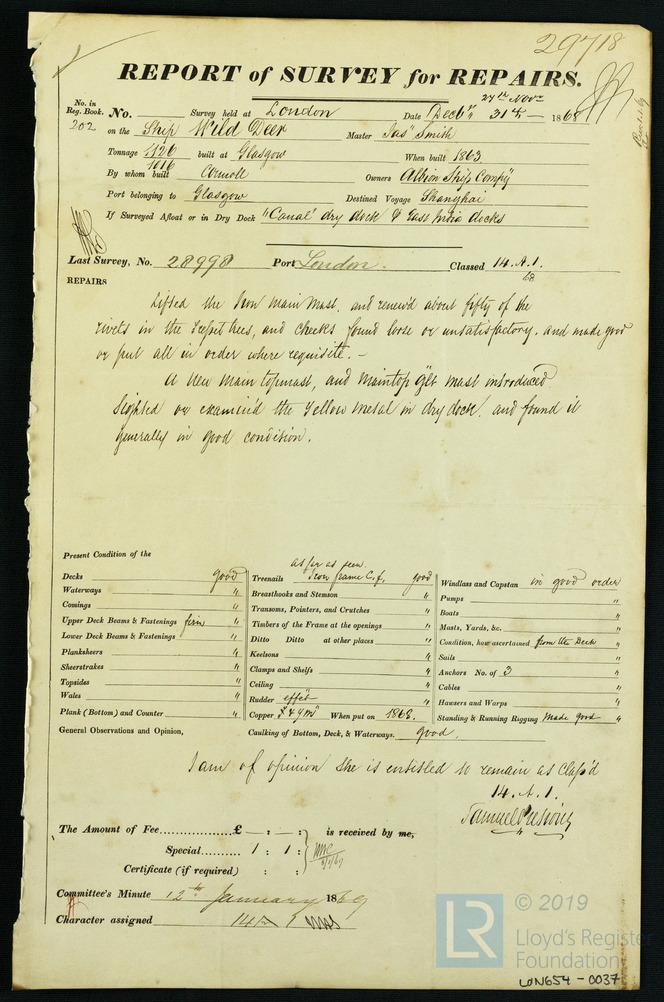 29718
REPORT of SURVEY for REPAIRS.
No. in Reg. Book. 202
No. Survey held at London Date 27th Novr Decbr 31st 1868
on the Ship Wild Deer Master Jas Smith
Tonnage 1126 1016 built at Glasgow When built 1863
By whom built Connell Owners Albion Ship Compy
Port belonging to Glasgow Destined Voyage Shanghai
If Surveyed Afloat or in Dry Dock "Canal" dry dock & East India docks
Last Survey, No. 28998 Port London. Classed 14. A.1.
68
REPAIRS
Lifted the Iron Main Mast, and renew'd about fifty of the
rivets in the Trepitrees, and cheeks found loose or unsatisfactory, and made good
or put all in order where requisite. –
A New Main topmast, and Maintop Glt mast introduced
Sighted or examin'd the Yellow Metal in dry dock, and found it
generally in good condition.
Present Condition of the
Decks good
Waterways "
Comings "
Upper Deck Beams & Fastenings "
Lower Deck Beams & Fastenings "
Planksheers "
Sheerstrakes "
Topsides "
Wales "
Plank (Bottom) and Counter "
as far as seen.
Treenails Iron frame C.f. good
Breasthooks and Stemson "
Transoms, Pointers, and Crutches "
Timbers of the Frame at the openings "
Ditto Ditto at other places "
Keelsons "
Clamps and Shelfs "
Ceiling "
Rudder effect "
Copper & YM When put on 1868.
Windlass and Capstan in good order
Pumps "
Boats "
Masts, Yards, &c. "
Condition, how ascertained from the Deck "
Sails "
Anchors No. of 3 "
Cables "
Hawsers and Warps "
Standing & Running Rigging Made good "
General Observations and Opinion, Caulking of Bottom, Deck, & Waterways. good.
I am of opinion she is entitled to remain as Class'd
14. A.1.
Samuel
The Amount of Fee............... £ – : – : is received by me,
Special.......... 1 : 1 :
Certificate (if required) : :
Committee's Minute 12th January 1869
Character assigned 14A1
LR © 2019
Lloyd's Register
Foundation
LON654-0037